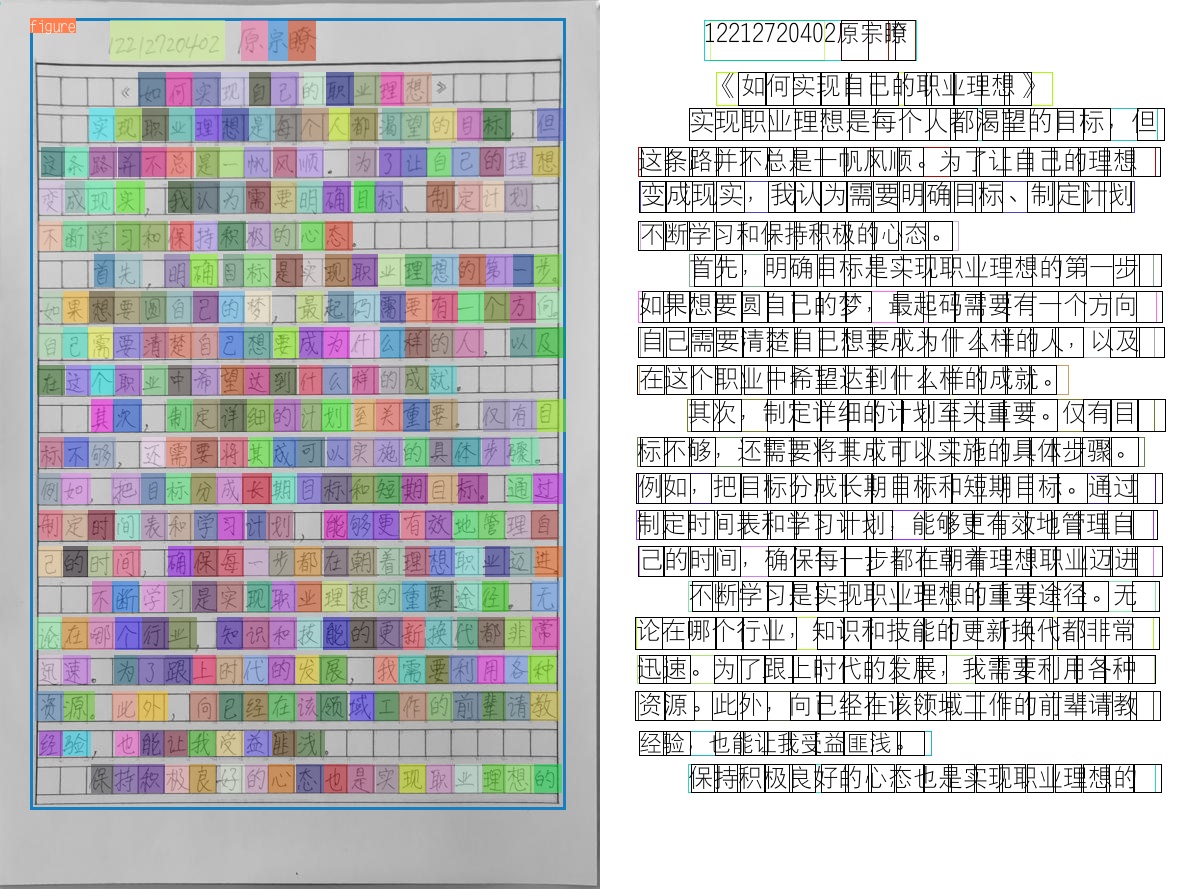 figure
12212720402 原宗瞭
《如何实现自己的职业理想》
实现职业理想是每个人都渴望的目标，但
这条路并不总是一帆风顺。为了让自己的理想
变成现实，我认为需要明确目标、制定计划、
不断学习和保持积极的心态。
首先，明确目标是实现职业理想的第一步。
如果想要圆自己的梦，最起码需要有一个方向
自己需要清楚自己想要成为什么样的人，以及
在这个职业中希望达到什么样的成就。
其次，制定详细的计划至关重要。仅有目
标不够，还需要将其成可以实施的具体步骤。
例如，把目标分成长期目标和短期目标。通过
制定时间表和学习计划，能够更有效地管理自
己的时间，确保每一步都在朝着理想职业迈进
不断学习是实现职业理想的重要途径。无
论在哪个行业，知识和技能的更新换代都非常
迅速。为了跟上时代的发展，我需要利用各种
资源。此外，向已经在该领域工作的前辈请教
经验，也能让我受益匪浅。
保持积极良好的心态也是实现职业理想的
12212720402原宗瞭
《如何实现自己的职业理想》
实现职业理想是每个人都渴望的目标，但
这条路并不总是一帆风顺。为了让自己的理想
变成现实，我认为需要明确目标、制定计划
不断学习和保持积极的心态。
首先，明确目标是实现职业理想的第一步
如果想要圆自己的梦，最起码需要有一个方向
自己需要清楚自己想要成为什么样的人，以及
在这个职业中希望达到什么样的成就。
其次，制定详细的计划至关重要。仅有目
标不够，还需要将其成可以实施的具体步骤。
例如，把目标分成长期目标和短期目标。通过
制定时间表和学习计划，能够更有效地管理自
己的时间，确保每一步都在朝着理想职业迈进
不断学习是实现职业理想的重要途径。无
论在哪个行业，知识和技能的更新换代都非常
迅速。为了跟上时代的发展，我需要利用各种
资源。此外，向已经在该领域工作的前辈请教
经验，也能让我受益匪浅。
保持积极良好的心态也是实现职业理想的